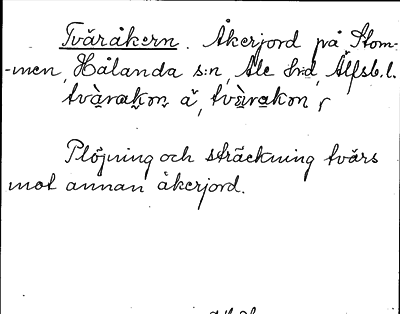 Tväråkern. Åkerjord på Stom-
-men, Hålanda s:n, Ale hrd, Älfsb.l.
Plöjning och sträckning tvärs
mot annan åkerjord.